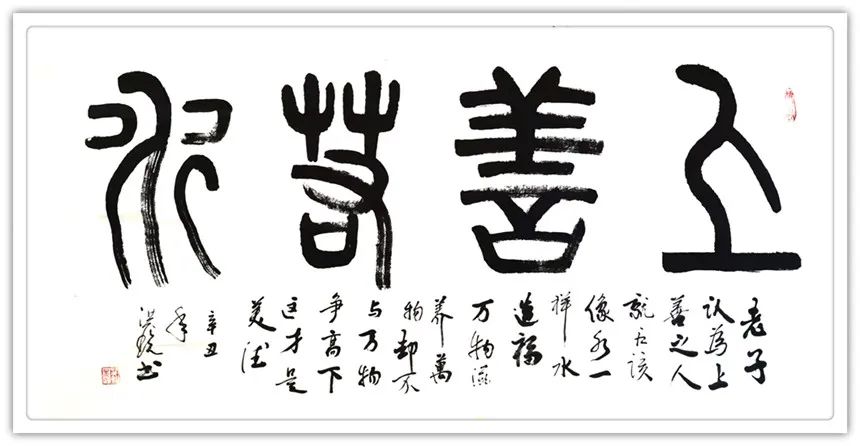 上善若水
老子
认為上
善之人
就应该
像水一
样水
造福
万物滋
养萬
物却不
与万物
争高下
这才是
美德
辛丑
年
书